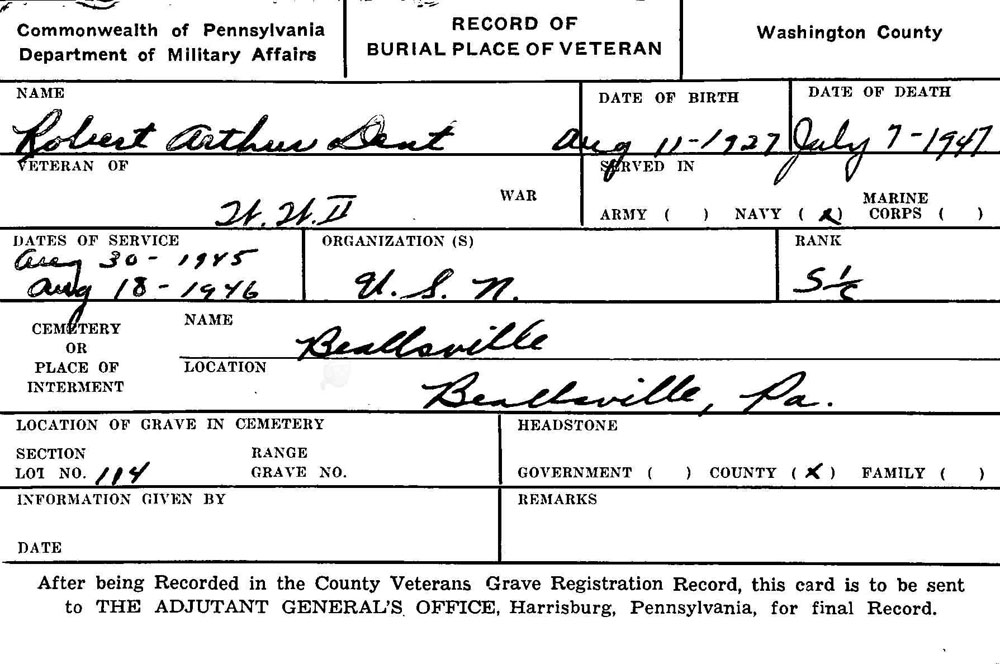 Commonwealth of Pennsylvania
Department of Military Affairs
RECORD OF
BURIAL PLACE OF VETERAN
Washington County
NAME
Robert Arthur Dent
DATE OF BIRTH
Aug 11-1927
DATE OF DEATH
July 7-1947
VETERAN OF
W.W.II
WAR
SERVED IN
ARMY ( ) NAVY (x) MARINE CORPS ( )
DATES OF SERVICE
Aug 30-1945
Aug 18-1946
ORGANIZATION (S)
U.S.N.
RANK
S 1/c
CEMETERY
OR
PLACE OF
INTERMENT
NAME
Beallsville
LOCATION
Beallsville, Pa.
LOCATION OF GRAVE IN CEMETERY
SECTION RANGE
LOT NO. 114 GRAVE NO.
HEADSTONE
GOVERNMENT ( ) COUNTY (X) FAMILY ( )
INFORMATION GIVEN BY
DATE
REMARKS
After being Recorded in the County Veterans Grave Registration Record, this card is to be sent
to THE ADJUTANT GENERAL'S OFFICE, Harrisburg, Pennsylvania, for final Record.